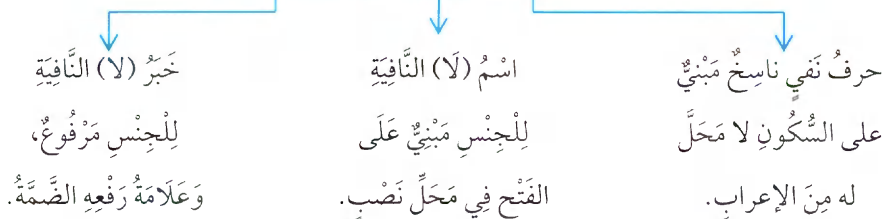 حرفُ نَفيٍ ناسِخٌ مَبْنيٌّ
على السُّكُونِ لا مَحَلَّ
له مِنَ الإعرابِ.
اسْمُ (لَا) النَّافِيَةِ
لِلْجِنْسِ مَبْنِيٌّ عَلَى
الفَتْحِ فِي مَحَلِّ نَصْبٍ.
خَبَرُ (لا) النَّافِيَةِ
لِلْجِنْسِ مَرْفُوعٌ،
وَعَلَامَةُ رَفْعِهِ الضَّمَّةُ.